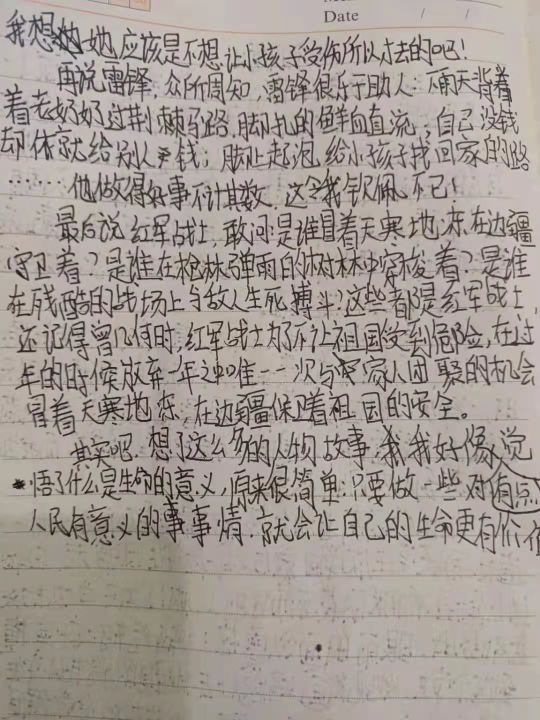 Date / /
我想她她,应该是不想让小孩子受伤所以才去的吧!
再说雷锋,众所周知,雷锋很乐于助人:雨天背着
着老奶奶过荆棘马路,脚扎的鲜血直流;自己没钱
却依就给别人钱;脚上起泡,给小孩子找回家的路
……他做得好事不计其数,这令我钦佩不已!
最后说红军战士,敢问是谁冒着天寒地冻,在边疆
守卫着?是谁在枪林弹雨的树林中穿梭着?是谁
在残酷的战场上与敌人生死搏斗?这些都是红军战士,
还记得曾几何时,红军战士为了不让祖国受到危险,在过
年的时候放弃一年之中唯一一次与家人团聚的机会
冒着天寒地冻,在边疆保卫着祖国的安全。
其实吧,想了这么多的人物故事,我我好像觉
悟了什么是生命的意义,原来很简单:只要做一些对有点
人民有意义的事事情,就会让自己的生命更有价值